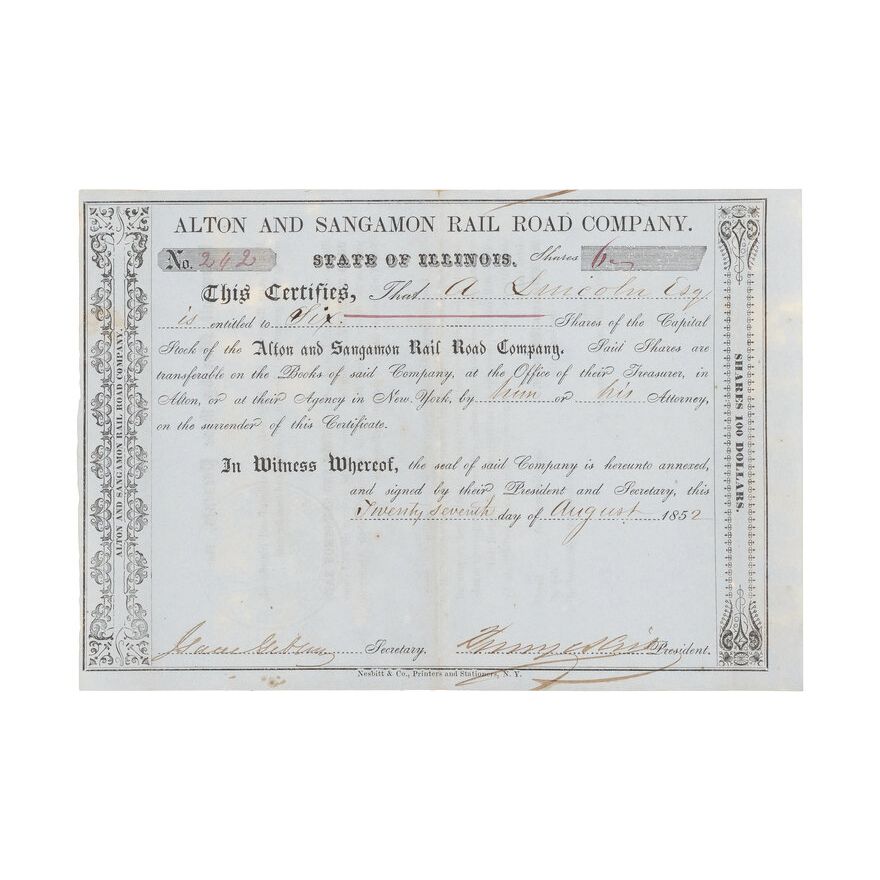 ALTON AND SANGAMON RAIL ROAD COMPANY.
No. 242 STATE OF ILLINOIS. Shares 6
This Certifies, That A Lincoln Esq.
is entitled to Six Shares of the Capital
Stock of the Alton and Sangamon Rail Road Company. Said Shares are
transferable on the Books of said Company, at the Office of their Treasurer, in
Alton, or at their Agency in New York, by him or his Attorney,
on the surrender of this Certificate.
In Witness Whereof, the seal of said Company is hereunto annexed,
and signed by their President and Secretary, this
Twenty seventh day of August 1852
Isaac Gibson Secretary. President.
Nesbitt & Co., Printers and Stationers, N. Y.
ALTON AND SANGAMON RAIL ROAD COMPANY.
SHARES 100 DOLLARS.